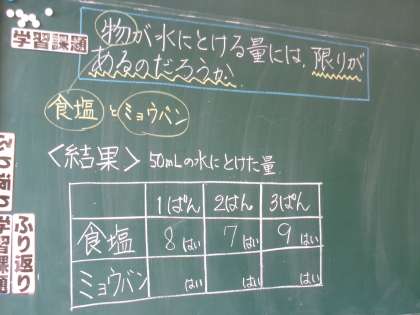 学習課題
物が水にとける量には、限りが
あるのだろうか
食塩とミョウバン
<結果> 50mLの水にとけた量
1ぱん 2はん 3ぱん
食塩 8はい 7はい 9はい
ミョウバン はい はい はい
ふり返り
学習課題